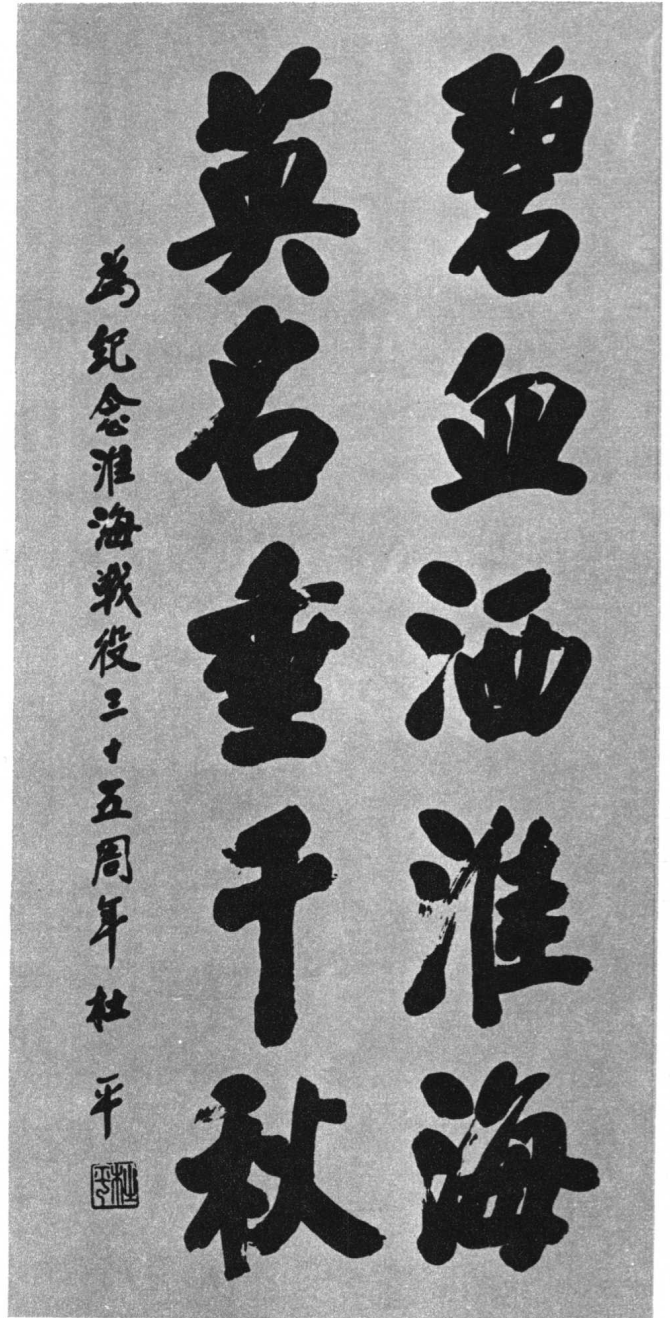 碧血洒淮海
英名垂千秋
为纪念淮海戰役三十五周年 杜平
杜平